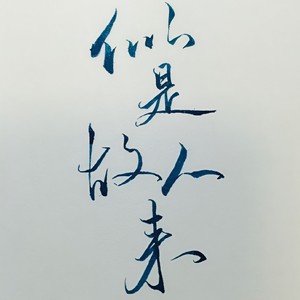 似
是
故人
来